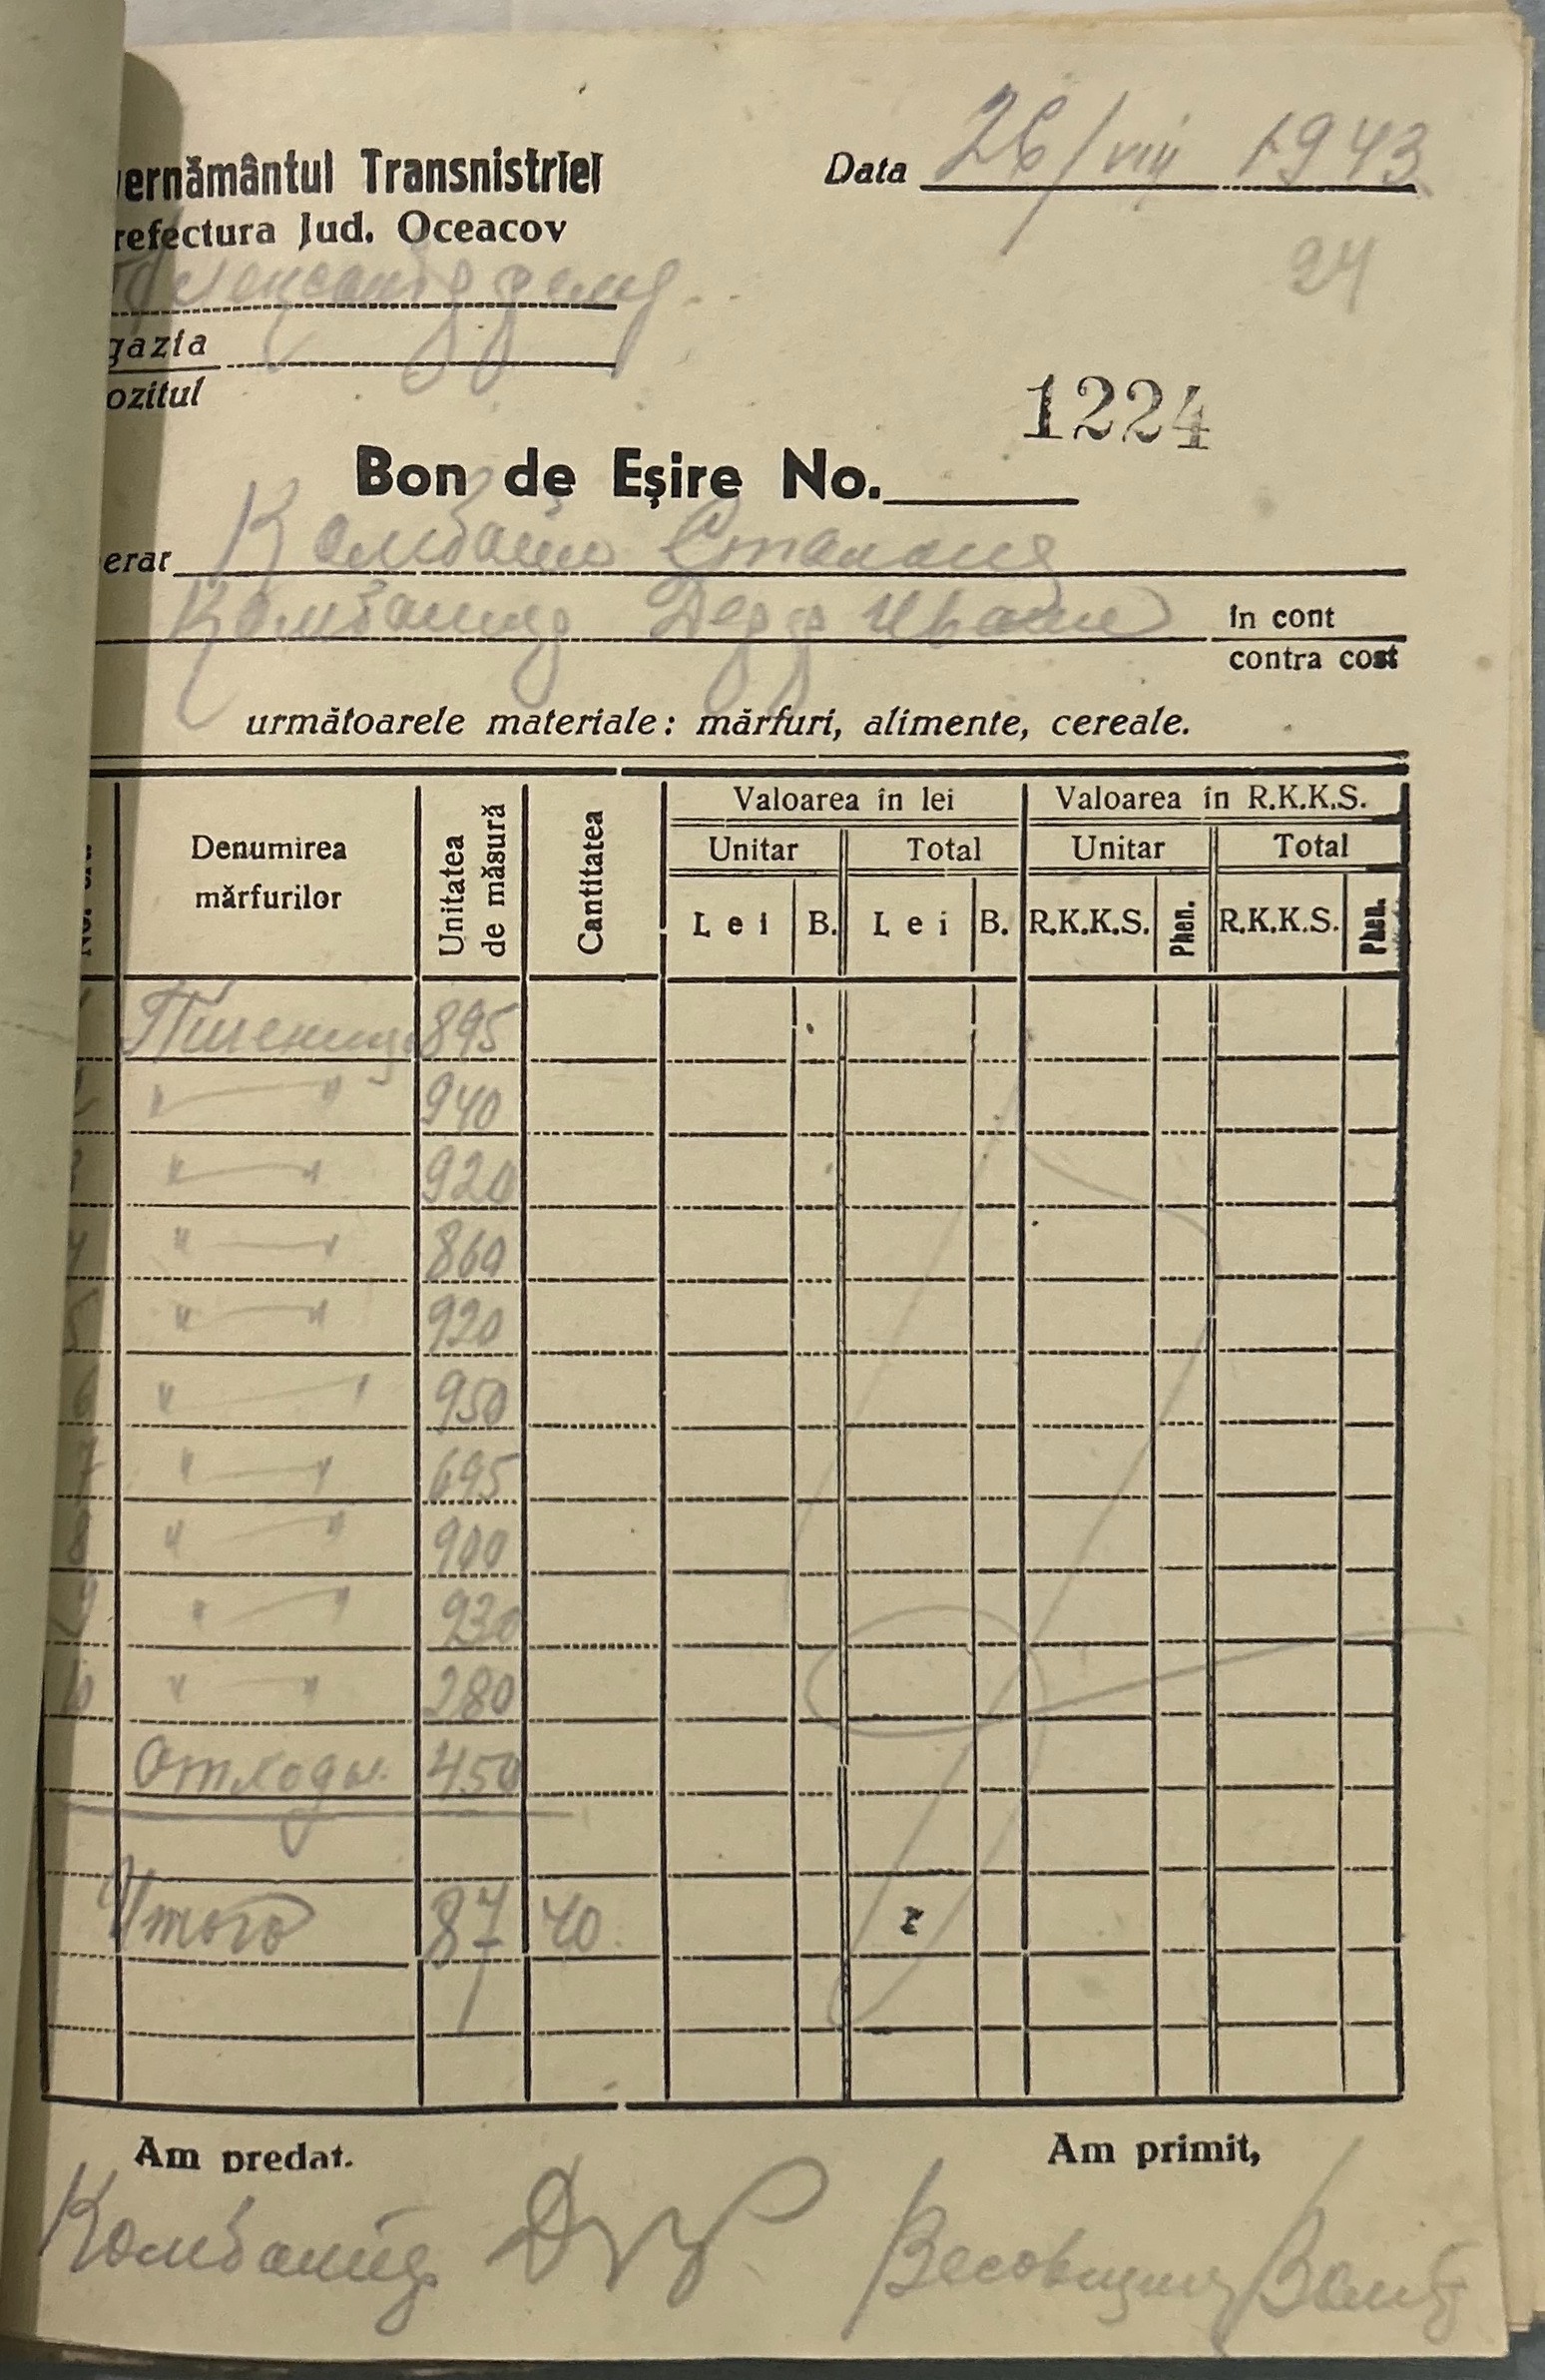 vernământul Transnistriei
refectura Jud. Oceacov
Data 26/VIII 1943
24
gazia
ozitul
1224
Bon de Eşire No.
erar Комбайн Сталина
Комбайнер Иван în cont
contra cost
următoarele materiale: mărfuri, alimente, cereale.
Denumirea mărfurilor Unitatea de măsură Cantitatea Valoarea în lei Valoarea în R.K.K.S.
Unitar Total Unitar Total
Lei B. Lei B. R.K.K.S. Phen. R.K.K.S. Phen.
Пшеница 895
" — " 940
3 " — " 920
4 " — " 860
5 " — " 920
6 " — " 950
7 " — " 695
8 " — " 900
9 " — " 930
10 " — " 280
Отходы 450
Итого 87 40
Am predat. Am primit,
Комбайнер Весовщик